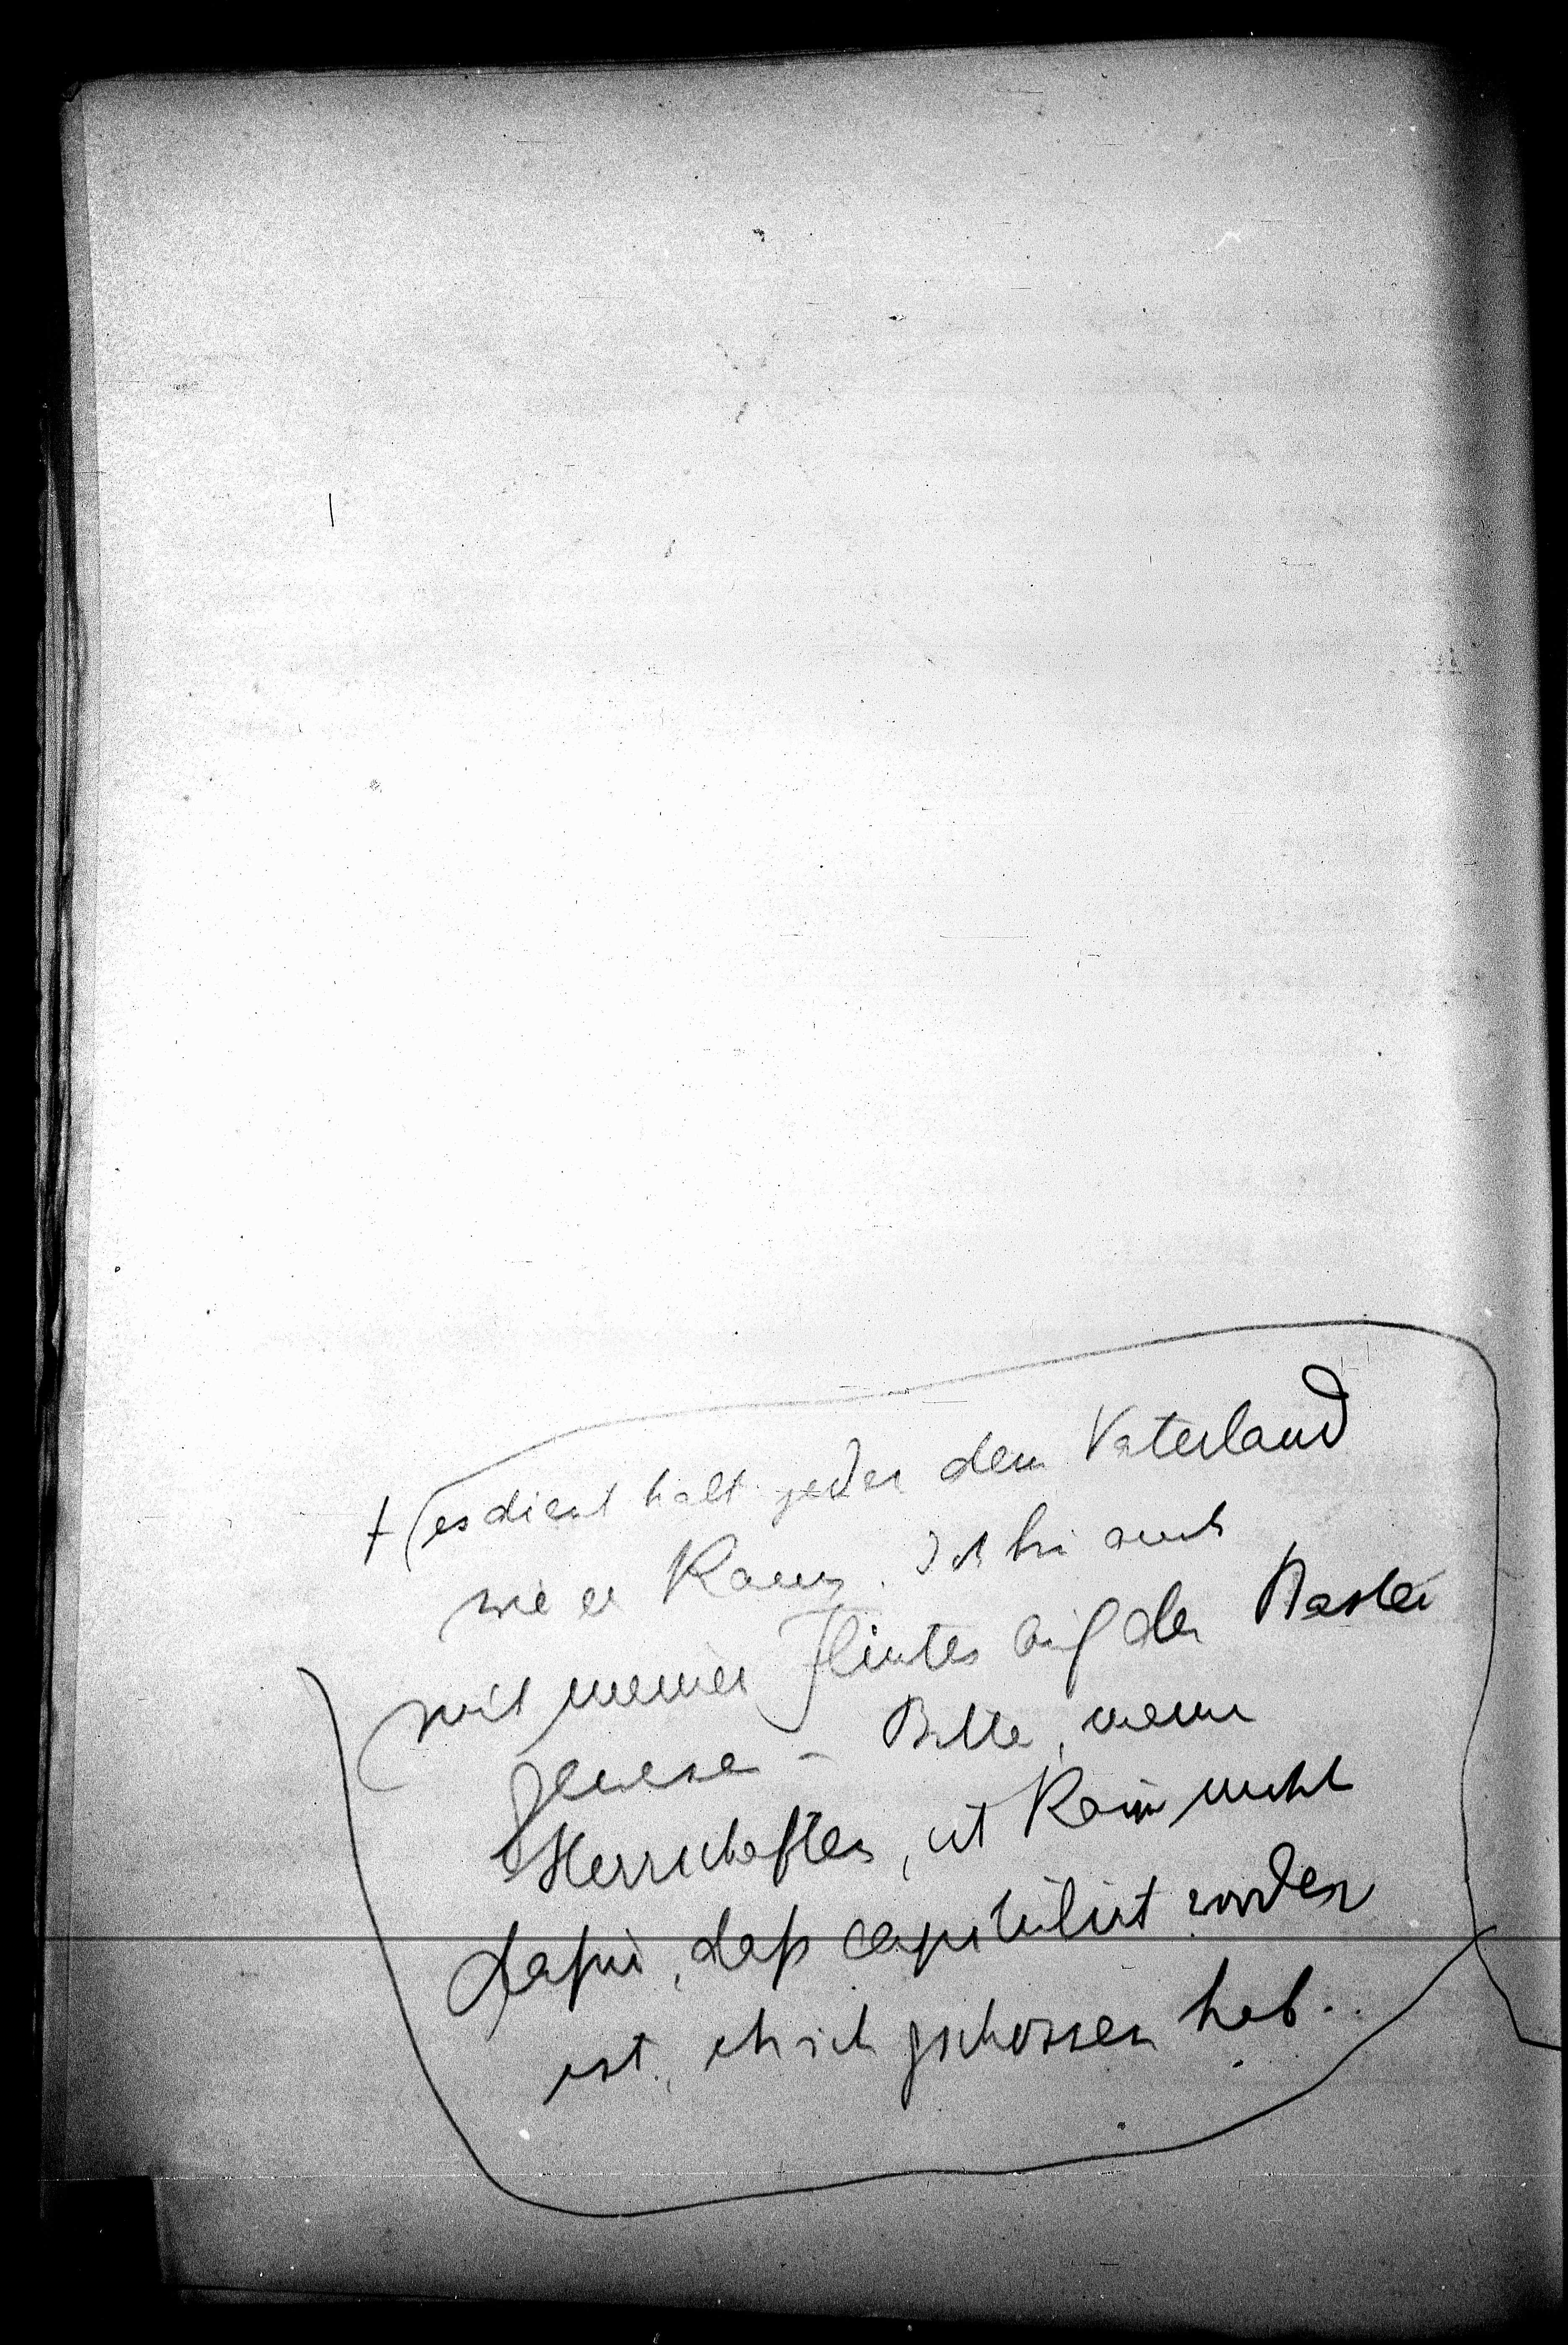 + (es dient halt jeder dem Vaterland
wie er kann. Ich bin auch
mit meiner Flinten auf der Bastei
gewesen – Bitte, meine
Herrschaften, ich kann nicht
dafür, daß capitulirt worden
ist, eh ich gschossen hab..